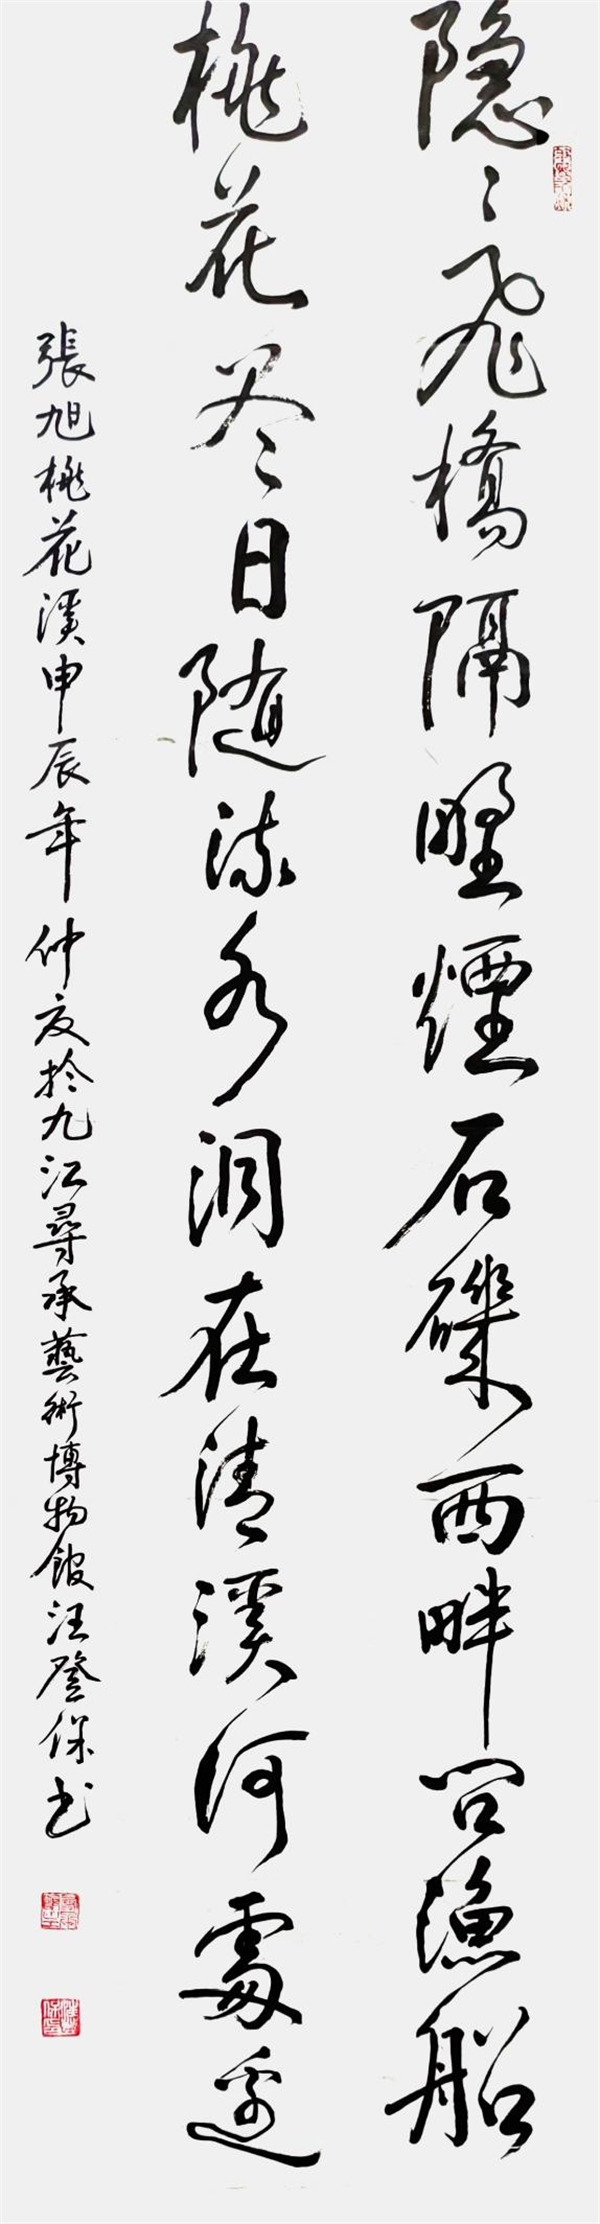 隐〻飛橋隔野煙石磯西畔问漁船
桃花尽日随流水洞在清溪何處邊
張旭桃花溪申辰年仲夏於九江尋承藝術博物館汪登保书